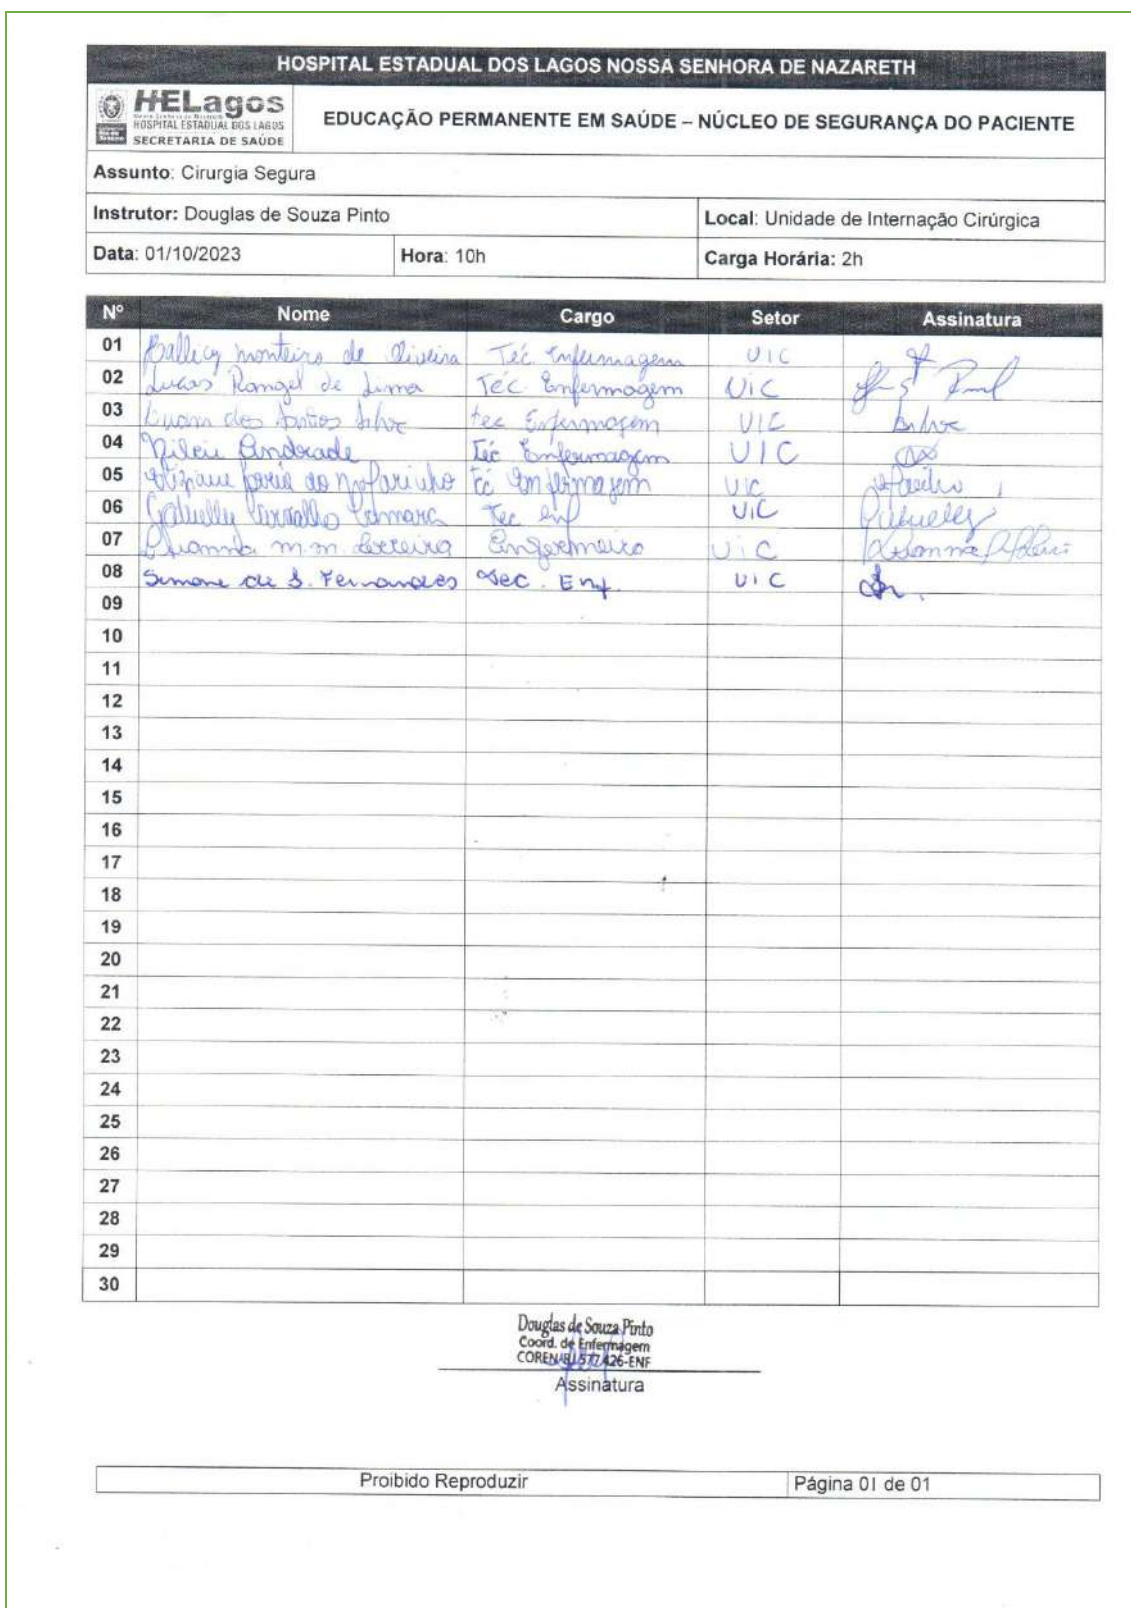 HOSPITAL ESTADUAL DOS LAGOS NOSSA SENHORA DE NAZARETH
HELagos
HOSPITAL ESTADUAL DOS LAGOS
SECRETARIA DE SAÚDE
EDUCAÇÃO PERMANENTE EM SAÚDE – NÚCLEO DE SEGURANÇA DO PACIENTE
Assunto: Cirurgia Segura
Instrutor: Douglas de Souza Pinto Local: Unidade de Internação Cirúrgica
Data: 01/10/2023 Hora: 10h Carga Horária: 2h
Nº Nome Cargo Setor Assinatura
01 monteiro de Oliveira Téc. Enfermagem UIC
02 Lucas Rangel de Lima Téc. Enfermagem UIC
03 Luam dos Santos Silva Tec Enfermagem UIC Silva
04 Andrade Téc Enfermagem UIC
05 Téc Enfermagem UIC
06 Carvalho Camara Tec enf UIC
07 m.m. Enfermeiro UIC
08 Simone de S. Fernandes Tec. Enf. UIC
09
10
11
12
13
14
15
16
17
18
19
20
21
22
23
24
25
26
27
28
29
30
Douglas de Souza Pinto
Coord. de Enfermagem
COREN-RJ 577.426-ENF
Assinatura
Proibido Reproduzir Página 01 de 01